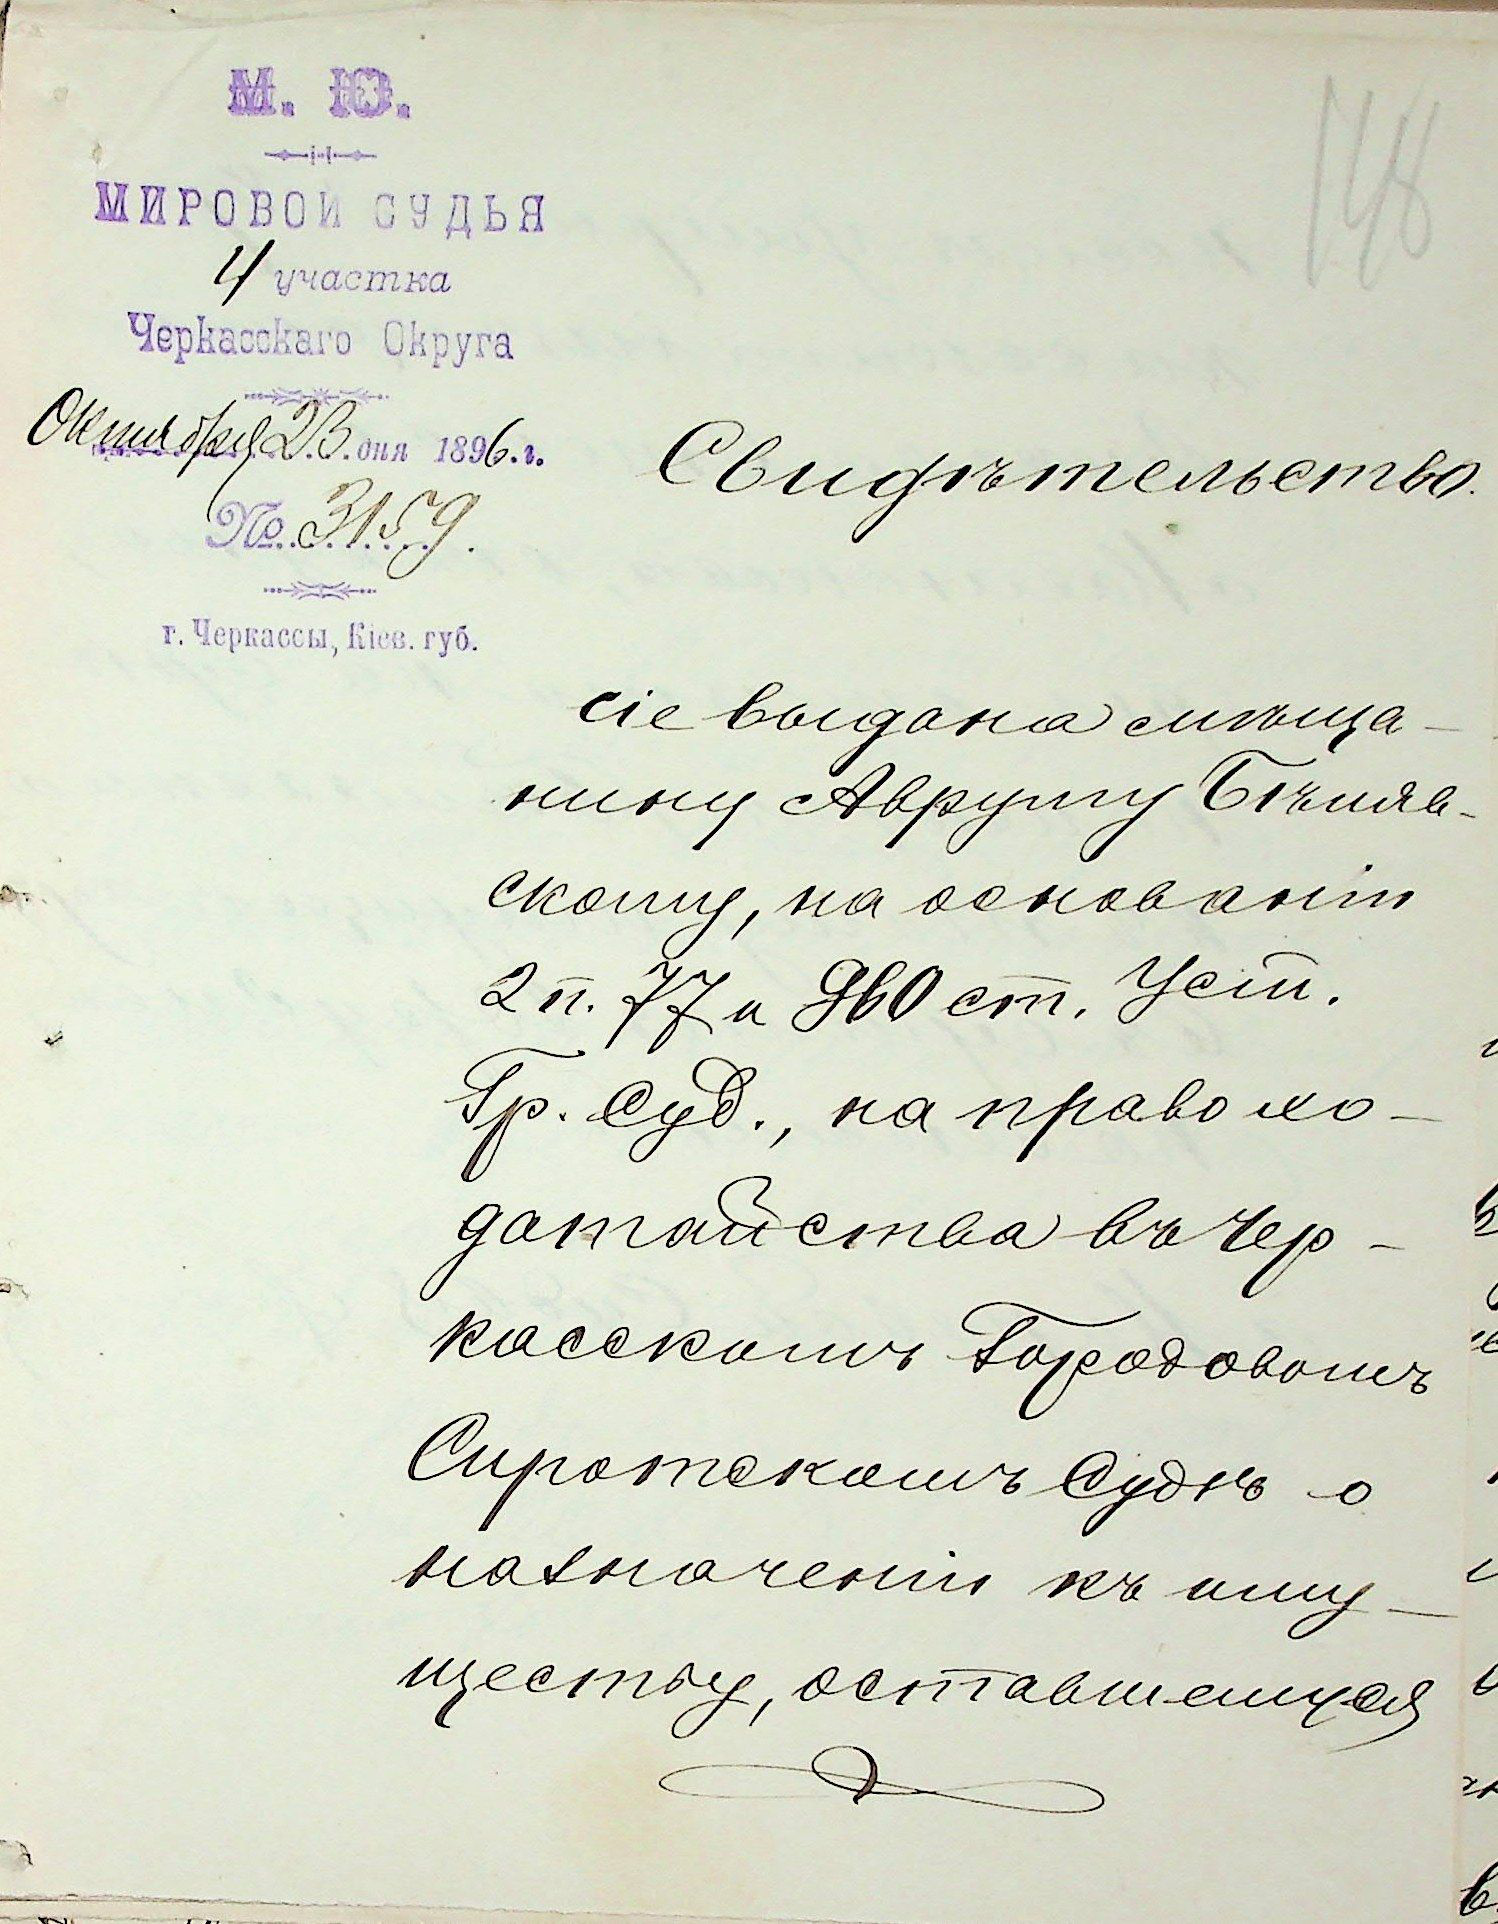 М. Ю.
148
МИРОВОЙ СУДЬЯ
4 участка
Черкасскаго Округа
Октября 23 дня 1896 г.
№ 3159.
г. Черкассы, Кіев. губ.
Свидѣтельство.
сіе выдана мѣща-
нину Авруму Бѣляв-
скому, на основаніи
2 п. 77 и 960 ст. Уст.
Гр. Суд., на право хо-
датайства въ Чер-
касскомъ Городовомъ
Сиротскомъ Судѣ о
назначеніи къ иму-
ществу, оставшемуся